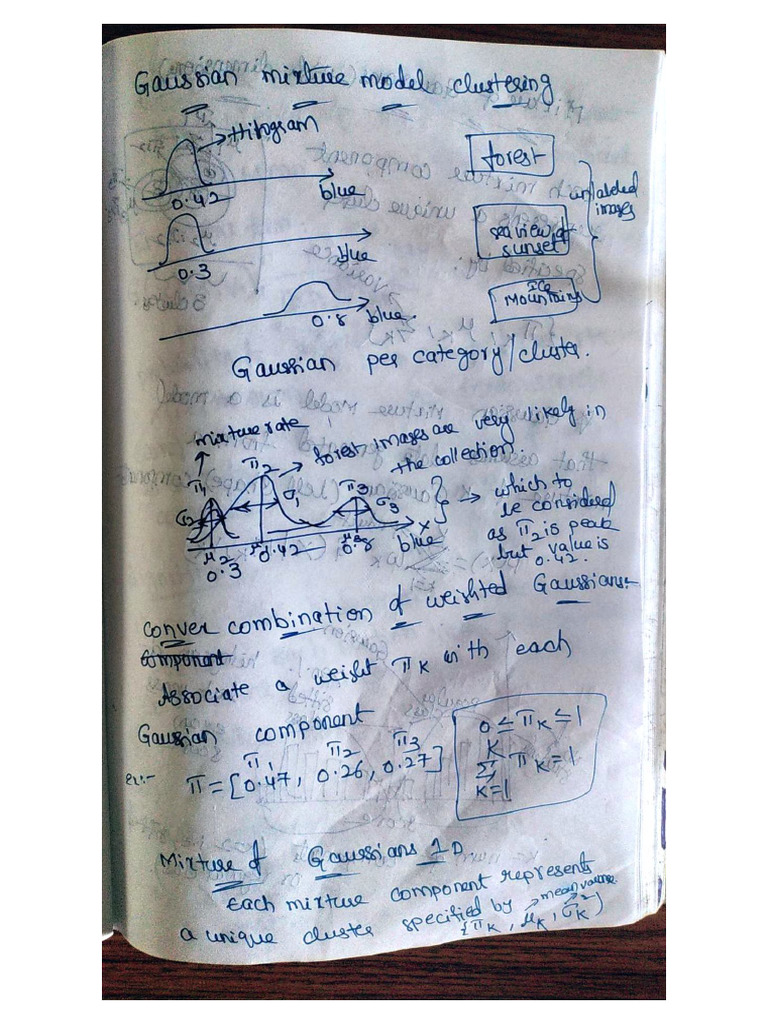 Gaussian mixture model clustering
Histogram
0.42 blue
forest
0.3 blue
sea view of
sunset
unlabeled
images
0.8 blue.
Ice
Mountains
Gaussian per category/cluster.
mixture rate
forest images are very likely in
the collection.
π1 π2 π3
σ2 σ1 σ3
x
μ2 μ1 μ3
0.3 0.42 0.8 blue
which to
be considered
as π2 is peak
but value is
0.42.
conver combination of weighted Gaussians:-
component
Associate a weight πK with each
Gaussian component
π1 π2 π3
ex:- π = [0.47, 0.26, 0.27]
0 ≤ πK ≤ 1
K
Σ πK = 1
K=1
Mixture of Gaussians 1D
Each mixture component represents
a unique cluster specified by
mean
{πK, μK, σK²}